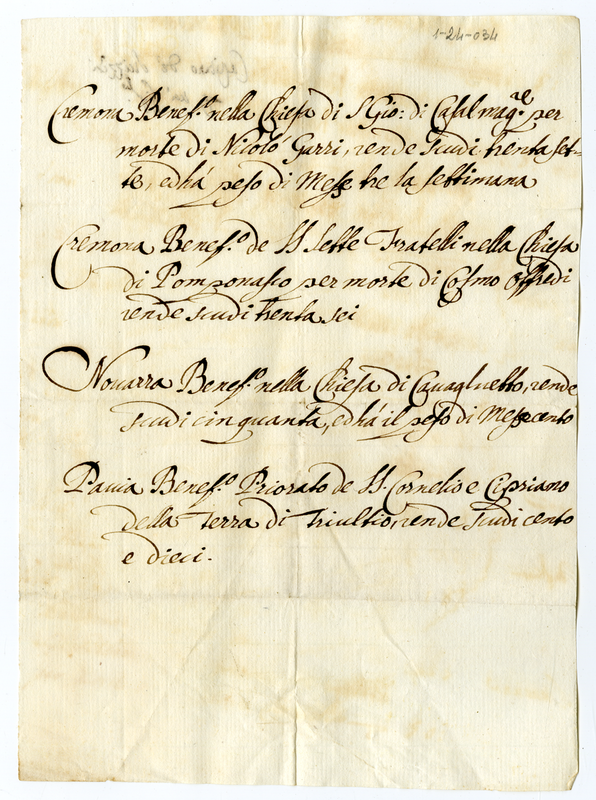 1-24-034
Cremona Benef.º nella Chiesa di S Gio: di Casal mag.re per
morte di Nicolò Garri, rende scudi trenta set-
te, ed hà peso di Messe tre la settimana
Cremona Benef.º de SS Sette Fratelli nella Chiesa
di Pomponasco per morte di Cosmo Offredi
rende scudi trenta sei
Novarra Benef.º nella Chiesa di Cavaglietto, rende
scudi cinquanta, ed hà il peso di Messe cento
Pavia Benef.º Priorato de SS. Cornelio e Cipriano
della Terra di Triultio, rende scudi cento
e dieci.